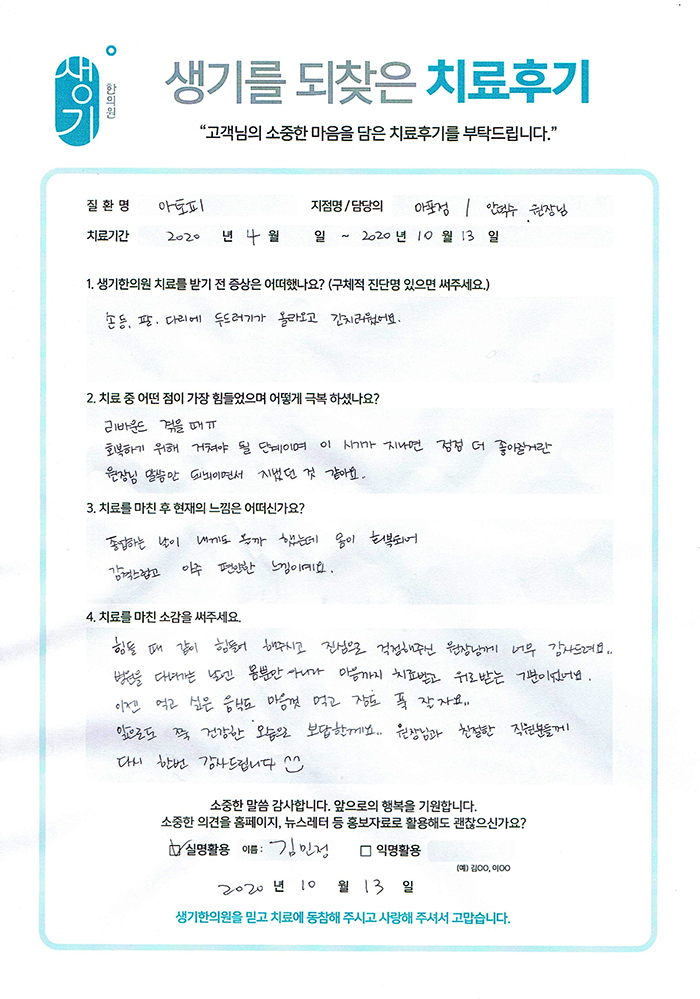 생기
한의원
생기를 되찾은 치료후기
“고객님의 소중한 마음을 담은 치료후기를 부탁드립니다.”
질 환 명 아토피 지점명 / 담당의 마포점 / 원장님
치료기간 2020 년 4 월 일 ~ 2020 년 10 월 13 일
1. 생기한의원 치료를 받기 전 증상은 어떠했나요? (구체적 진단명 있으면 써주세요.)
손등, 팔. 다리에 두드러기가 올라오고 간지러웠어요.
2. 치료 중 어떤 점이 가장 힘들었으며 어떻게 극복 하셨나요?
리바운드 겪을 때ㅠ
회복하기 위해 거쳐야 될 단계이며 이 시기가 지나면 점점 더 좋아질거란
원장님 말씀만 되뇌이면서 지냈던 것 같아요.
3. 치료를 마친 후 현재의 느낌은 어떠신가요?
졸업하는 날이 내게도 올까 했는데 몸이 회복되어
감격스럽고 아주 편안한 느낌이예요.
4. 치료를 마친 소감을 써주세요.
힘들 때 같이 힘들어 해주시고 진심으로 걱정해주신 원장님께 너무 감사드려요..
병원을 다녀가는 날엔 몸뿐만 아니라 마음까지 치료받고 위로받는 기분이었어요.
이젠 먹고 싶은 음식도 마음껏 먹고 잠도 푹 잘 자요..
앞으로도 쭉 건강한 모습으로 보답할게요.. 원장님과 친절한 직원분들께
다시 한번 감사드립니다
소중한 말씀 감사합니다. 앞으로의 행복을 기원합니다.
소중한 의견을 홈페이지, 뉴스레터 등 홍보자료로 활용해도 괜찮으신가요?
실명활용 이름 : 김민정 익명활용
(예) 김OO, 이OO
2020 년 10 월 13 일
생기한의원을 믿고 치료에 동참해 주시고 사랑해 주셔서 고맙습니다.